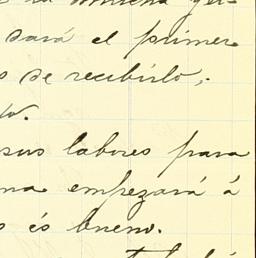 mucha
sará el primer
s de recibirlo,.
to.
sus labores para
na empezará á
s és bueno.